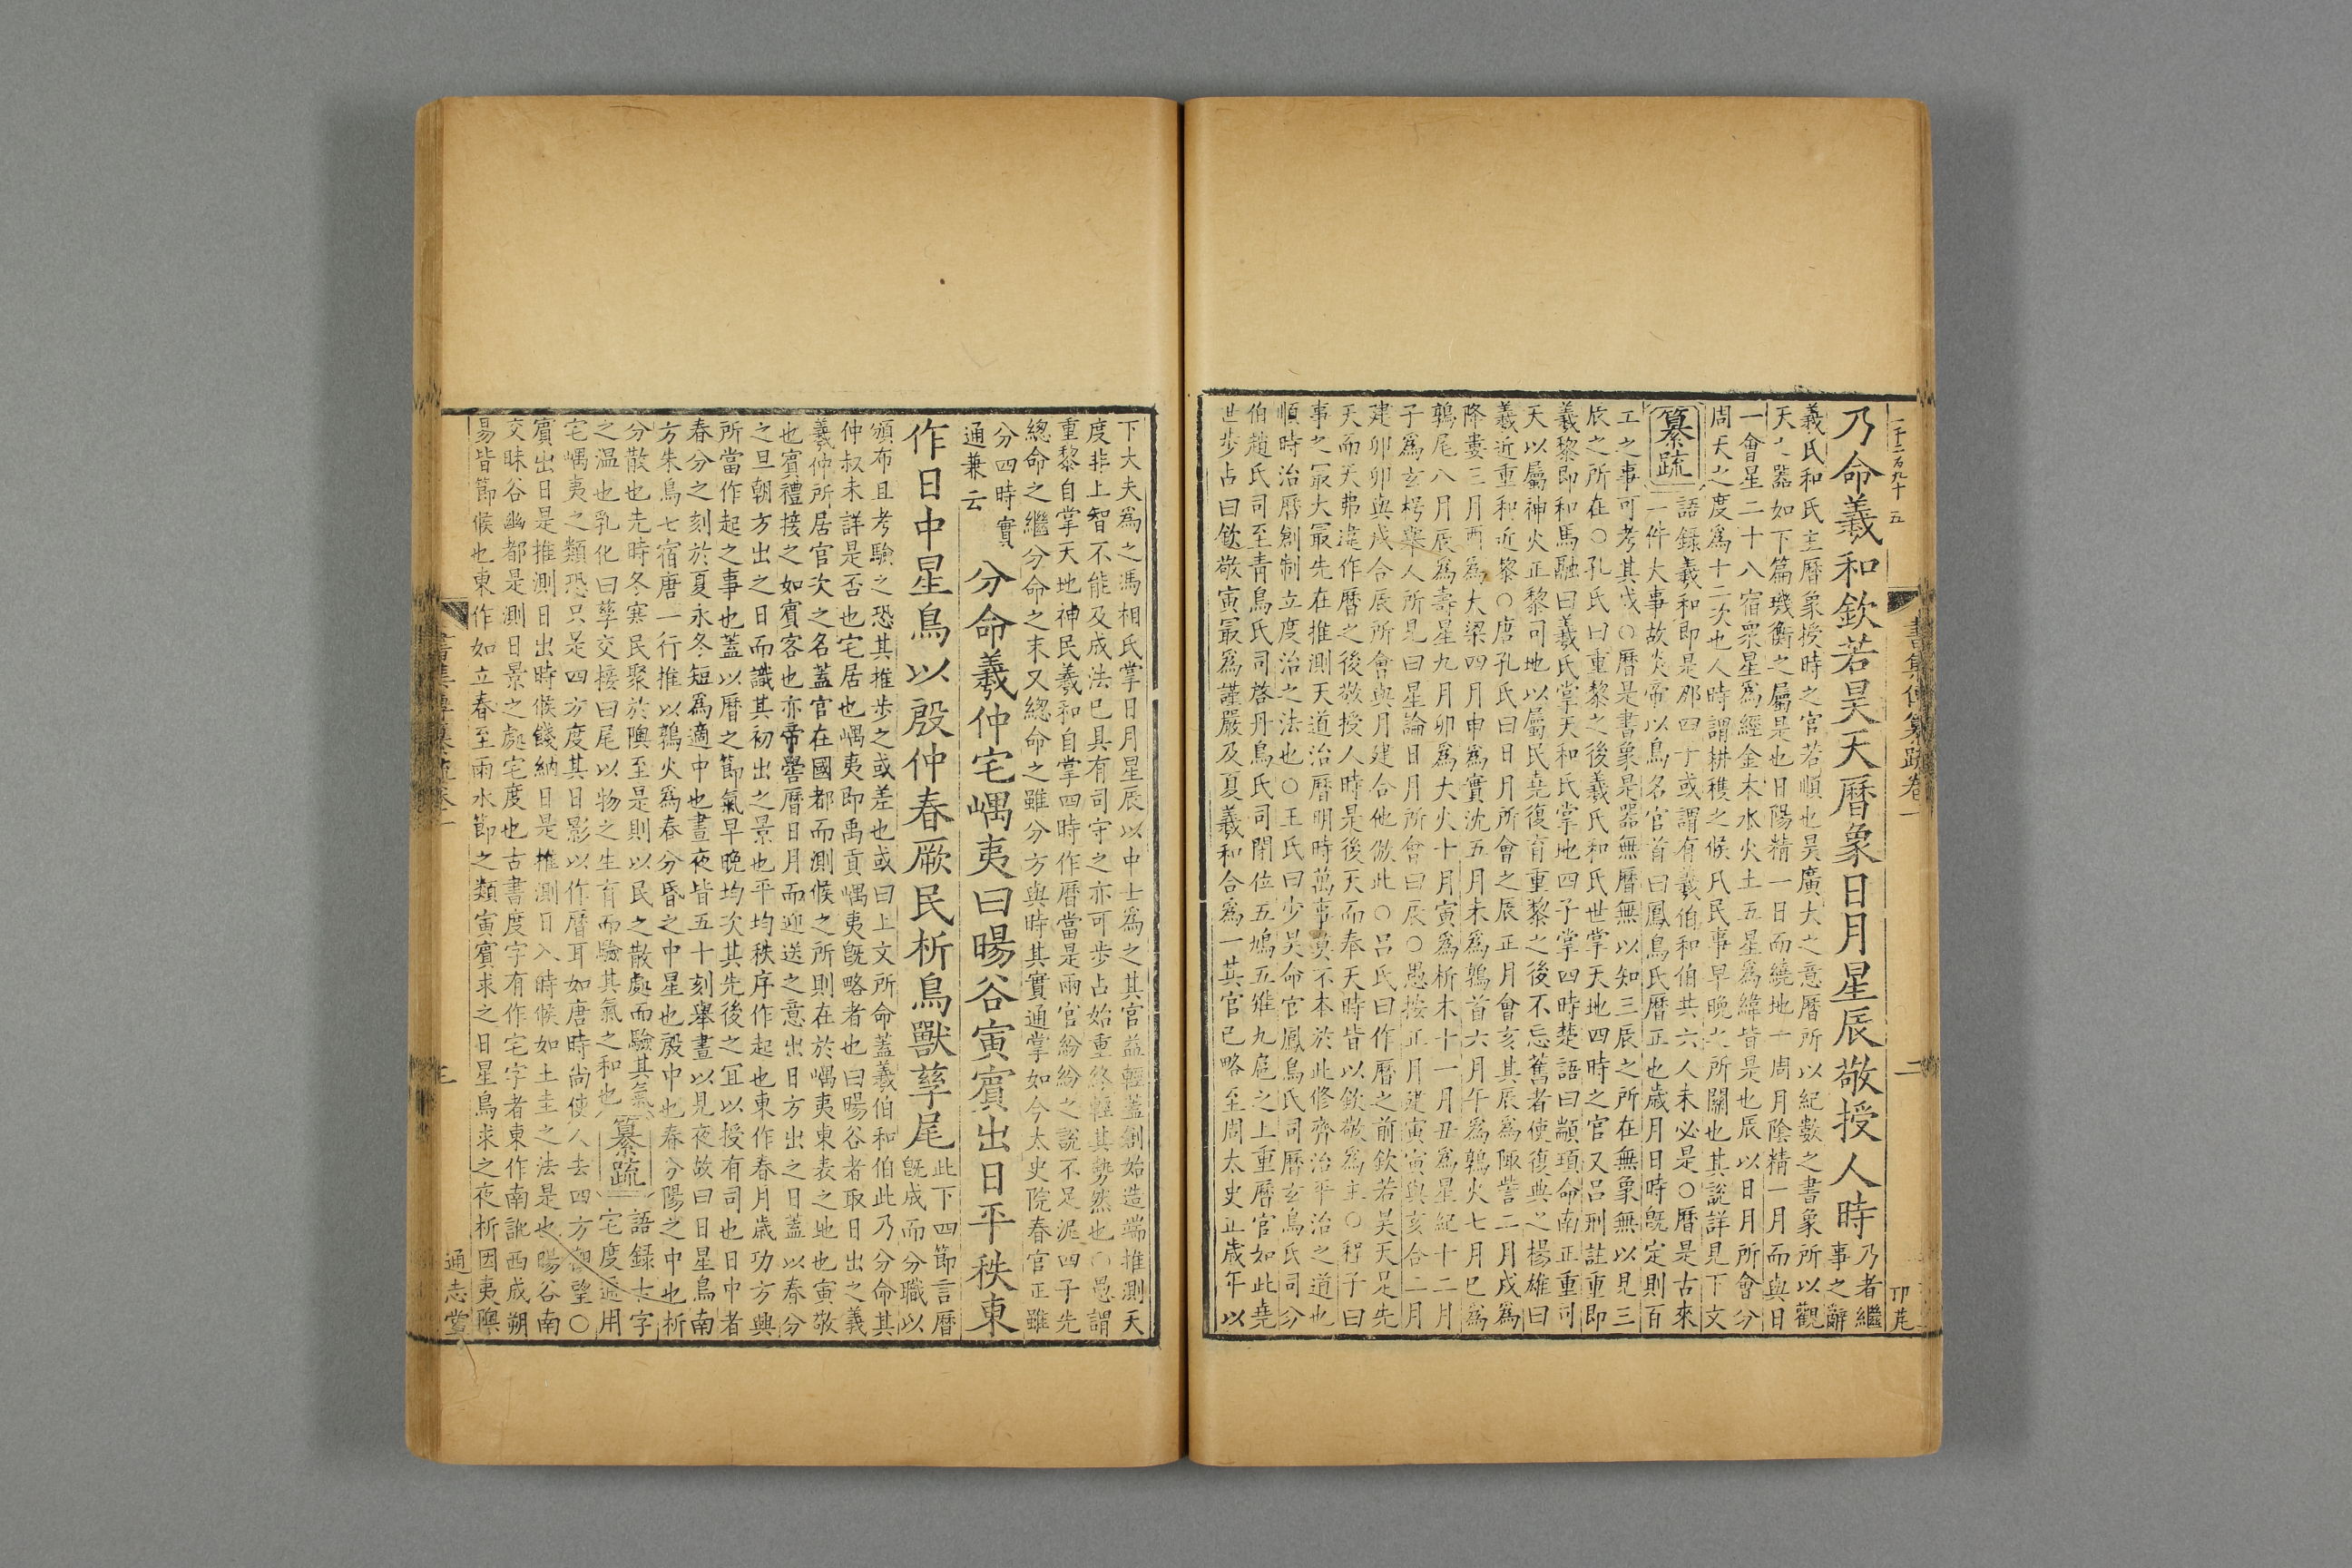 二千二百九十五
書集傳纂疏卷一
二
卭芃
乃命羲和欽若昊天曆象日月星辰敬授人時乃者繼
事之辭
羲氏和氏主曆象授時之官若順也昊廣大之意曆所以紀數之書象所以觀
天之器如下篇璣衡之屬是也日陽精一日而繞地一周月陰精一月而與日
一會星二十八宿衆星爲經金木水火土五星爲緯皆是也辰以日月所會分
周天之度爲十二次也人時謂耕穫之候凡民事早晚之所關也其說詳見下文
纂疏
語録羲和即是那四子或謂有羲伯和伯共六人未必是○曆是古來
一件大事故炎帝以鳥名官首曰鳳鳥氏曆正也歲月日時旣定則百
工之事可考其成○曆是書象是器無曆無以知三辰之所在無象無以見三
辰之所在○孔氏曰重黎之後羲氏和氏世掌天地四時之官又呂刑註重即
羲黎即和馬融曰羲氏掌天和氏掌地四子掌四時楚語曰顓頊命南正重司
天以屬神火正黎司地以屬民堯復育重黎之後不忘舊者使復典之楊雄曰
羲近重和近黎○唐孔氏曰日月所會之辰正月會亥其辰爲陬訾二月戌爲
降婁三月酉爲大梁四月申爲實沈五月未爲鶉首六月午爲鶉火七月巳爲
鶉尾八月辰爲壽星九月卯爲大火十月寅爲析木十一月丑爲星紀十二月
子爲玄枵舉人所見曰星論日月所會曰辰○愚按正月建寅寅與亥合二月
建卯卯與戌合辰所會與月建合他倣此○呂氏曰作曆之前欽若昊天足先
天而天弗違作曆之後敬授人時是後天而奉天時皆以欽敬爲主○程子曰
事之最大最先在推測天道治曆明時萬事莫不本於此修齊治平治之道也
順時治曆創制立度治之法也○王氏曰少昊命官鳳鳥氏司曆玄鳥氏司分
伯趙氏司至青鳥氏司啓丹鳥氏司閉位五鳩五雉九扈之上重曆官如此堯
世步占曰欽敬寅最爲謹嚴及夏羲和合爲一其官已略至周太史正歲年以
下大夫爲之馮相氏掌日月星辰以中士爲之其官益輕蓋創始造端推測天
度非上智不能及成法已具有司守之亦可步占始重終輕其勢然也○愚謂
重黎自掌天地神民羲和自掌四時作曆當是兩官紛紛之說不足泥四子先
總命之繼分命之末又總命之雖分方與時其實通掌如今太史院春官正雖
分四時實
通兼云
分命羲仲宅嵎夷曰暘谷寅賓出日平秩東
作日中星鳥以殷仲春厥民析鳥獸孳尾此下四節言曆
旣成而分職以
頒布且考驗之恐其推步之或差也或曰上文所命蓋羲伯和伯此乃分命其
仲叔未詳是否也宅居也嵎夷即禹貢嵎夷旣略者也曰暘谷者取日出之義
羲仲所居官次之名蓋官在國都而測候之所則在於嵎夷東表之地也寅敬
也賓禮接之如賓客也亦帝嚳曆日月而迎送之意出日方出之日蓋以春分
之旦朝方出之日而識其初出之景也平均秩序作起也東作春月歲功方興
所當作起之事也蓋以曆之節氣早晚均次其先後之宜以授有司也日中者
春分之刻於夏永冬短爲適中也晝夜皆五十刻舉晝以見夜故曰日星鳥南
方朱鳥七宿唐一行推以鶉火爲春分昏之中星也殷中也春分陽之中也析
分散也先時冬寒民聚於隩至是則以民之散處而驗其氣
之温也乳化曰孳交接曰尾以物之生育而驗其氣之和也
纂疏
語録古字
宅度通用
宅嵎夷之類恐只是四方度其日影以作曆耳如唐時尚使人去四方觀望○
賓出日是推測日出時候餞納日是推測日入時候如土圭之法是也暘谷南
交昧谷幽都是測日景之處宅度也古書度字有作宅字者東作南訛西成朔
昜皆節候也東作如立春至雨水節之類寅賓求之日星鳥求之夜析因夷隩
通志堂